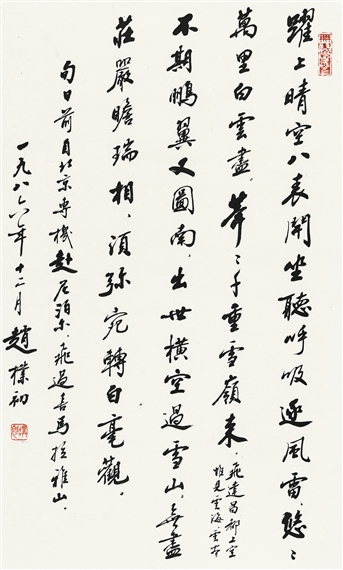 躍上晴空八表開坐聽呼吸逐風雷。悠〻
萬里白雲盡。莽〻千重雪嶺來。
飛達昌都上空
見雲海雲
不期鵬翼又圖南，出世橫空過雪山。無盡
莊嚴瞻瑞相，須弥宛轉白毫觀。
旬日前自北京專機赴尼泊尔飛過喜馬拉雅山。
一九八六年十二月 趙樸初